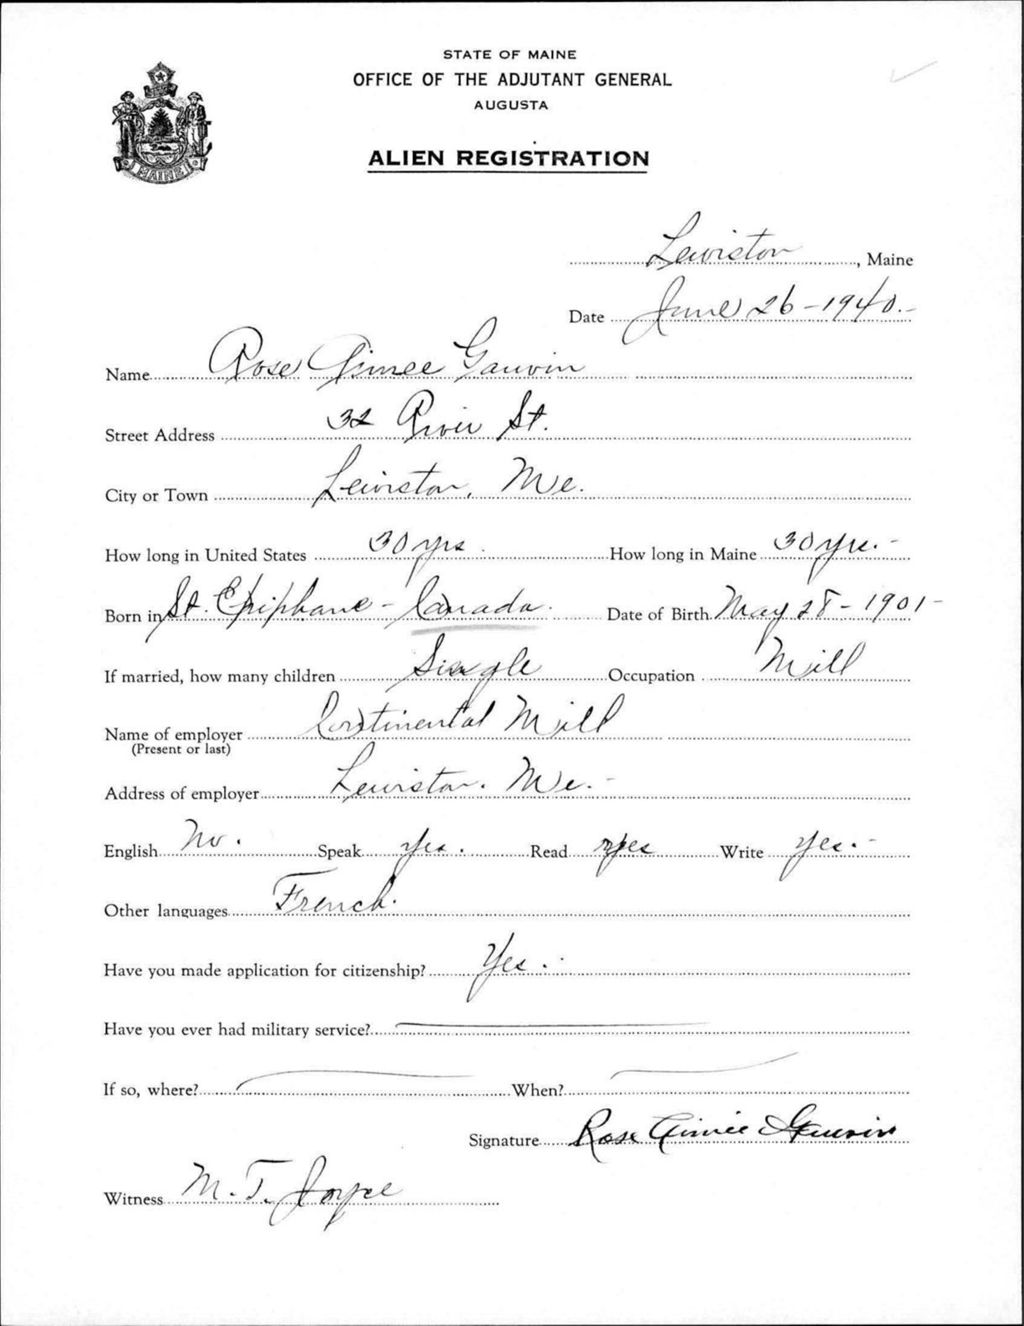 STATE OF MAINE
OFFICE OF THE ADJUTANT GENERAL
AUGUSTA
ALIEN REGISTRATION
MAINE
Lewiston, Maine
Date June 26-1940.-
Name Rose Aimee Gauvin
Street Address 32 River St.
City or Town Lewiston, Me.
How long in United States 30 yrs. How long in Maine 30 yrs.-
Born in St. Epiphane - Canada. Date of Birth May 28-1901-
If married, how many children Single Occupation Mill
Name of employer Continental Mill
(Present or last)
Address of employer Lewiston. Me.-
English No. Speak yes. Read yes Write yes.-
Other languages French.
Have you made application for citizenship? Yes.
Have you ever had military service?
If so, where? When?
Signature Rose Aimée Gauvin
Witness M. T. Joyce